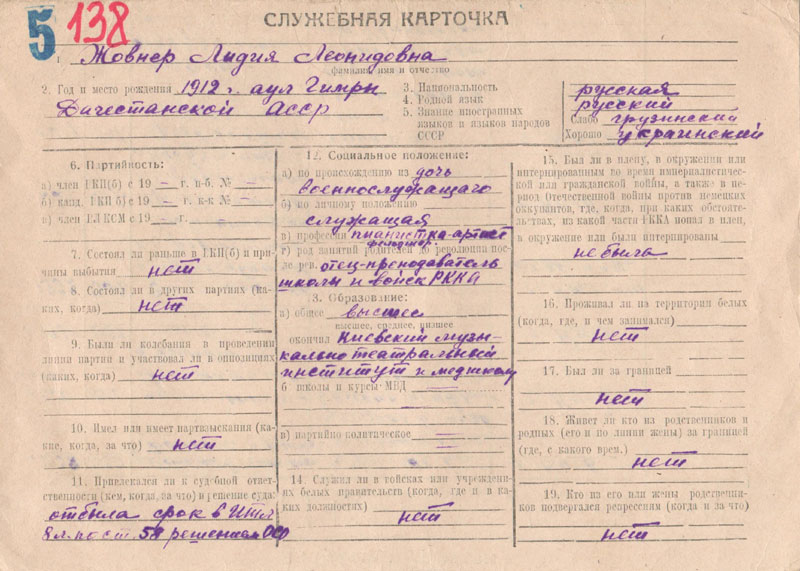 5
138
СЛУЖЕБНАЯ КАРТОЧКА
1. Жовнер Лидия Леонидовна
фамилия, имя и отчество
2. Год и место рождения 1912 г. аул Гимри
Дагестанской АССР
3. Национальность русская
4. Родной язык русский
5. Знание иностранных Слабо грузинский
языков и языков народов
СССР Хорошо украинский
6. Партийность:
а) член ВКП(б) с 19 – г. п-б. № –
б) канд. ВКП(б) с 19 – г. к-к № –
в) член ВЛКСМ с 19 – г.
7. Состоял ли раньше в ВКП(б) и при-
чины выбытия нет
8. Состоял ли в других партиях (ка-
ких, когда) нет
9. Были ли колебания в проведении
линии партии и участвовал ли в оппозициях
(каких, когда) нет
10. Имел или имеет партвзыскания (ка-
кие, когда, за что) нет
11. Привлекался ли к судебной ответ-
ственности (кем, когда, за что) и решение суда:
отбыла срок в ИТЛ
8 л. по ст. 58 решением ОСО
12. Социальное положение:
а) по происхождению из дочь
военнослужащаго
б) по личному положению
служащая
в) профессия пианистка-артист
фельдшер
г) род занятий родителей до революции пос-
ле рев. отец-преподаватель
школы и войск РККА
13. Образование:
а) общее высшее
высшее, среднее, низшее
окончил Киевский музы-
кально театральный
институт и медшколу
б школы и курсы МВД
в) партийно политическое
14. Служил ли в войсках или учрежден-
иях белых правительств (когда, где и в ка-
ких должностях)
нет
15. Был ли в плену, в окружении или
интернированным во время империалистичес-
кой или гражданской войны, а также в пе-
риод Отечественной войны против немецких
оккупантов, где, когда, при каких обстоятел-
ьствах, из какой части РККА попал в плен,
в окружение или были интернированы
не была
16. Проживал ли на территории белых
(когда, где, и чем занимался)
нет
17. Был ли за границей
нет
18. Живет ли кто из родственников и
родных (его и по линии жены) за границей
(где, с какого врем.)
нет
19. Кто из его или жены родственни-
ков подвергался репрессиям (когда и за что)
нет